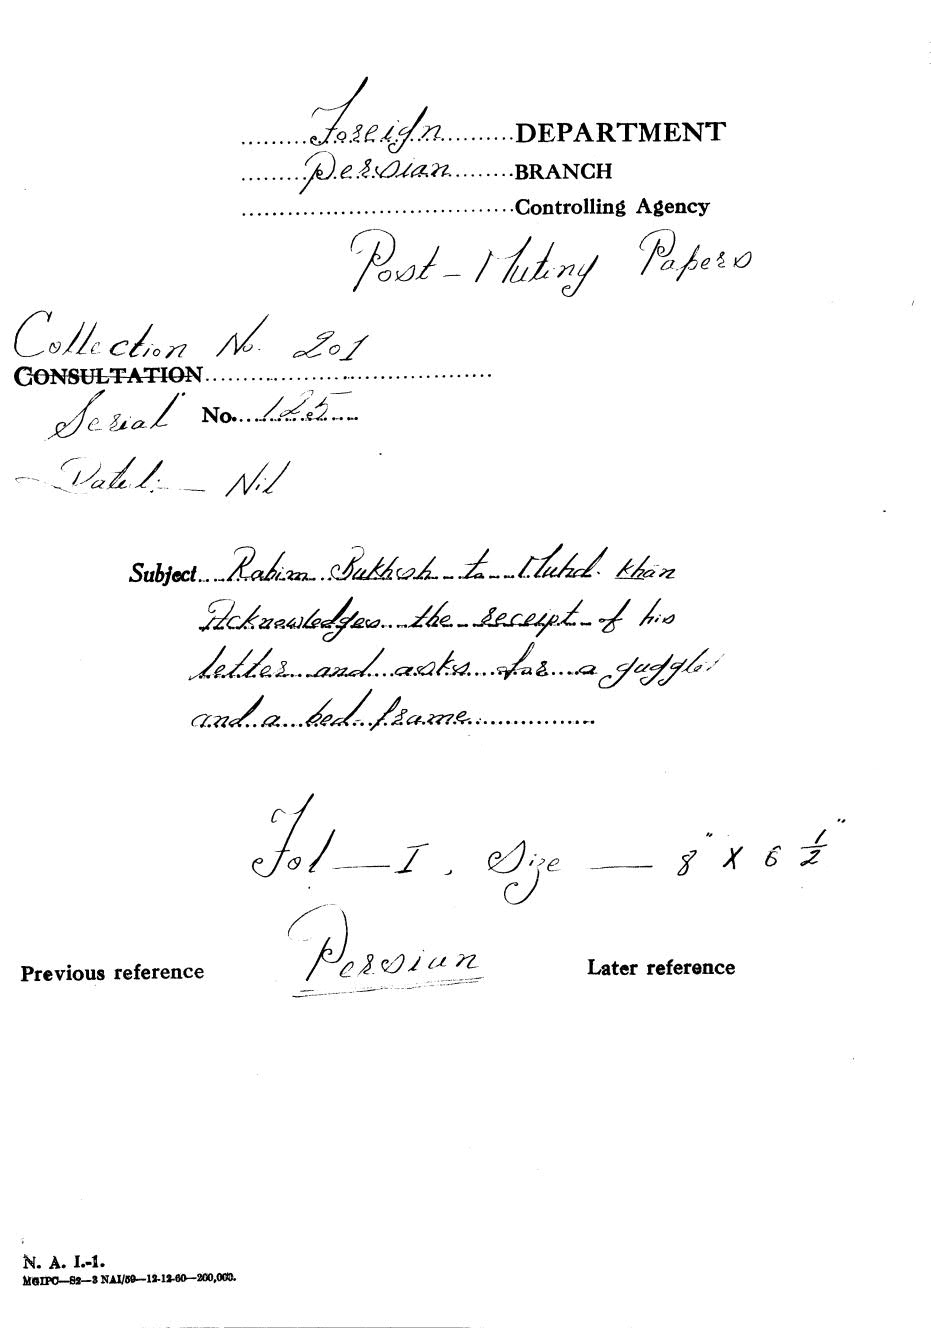 Foreign DEPARTMENT
Persian BRANCH
Controlling Agency
Post - Mutiny Papers
Collection No. 201
CONSULTATION
Serial No. 125
Dated:- Nil
Subject Rahim Bukhsh to Muhd. Khan
Acknowledges the receipt of his
letter and asks for a
and a bed frame
Fol - I, Size - 8" X 6 1/2"
Persian
Previous reference
Later reference
N. A. I.-1.
MGIPC—S2—3 NAI/59—12-12-60—200,000.